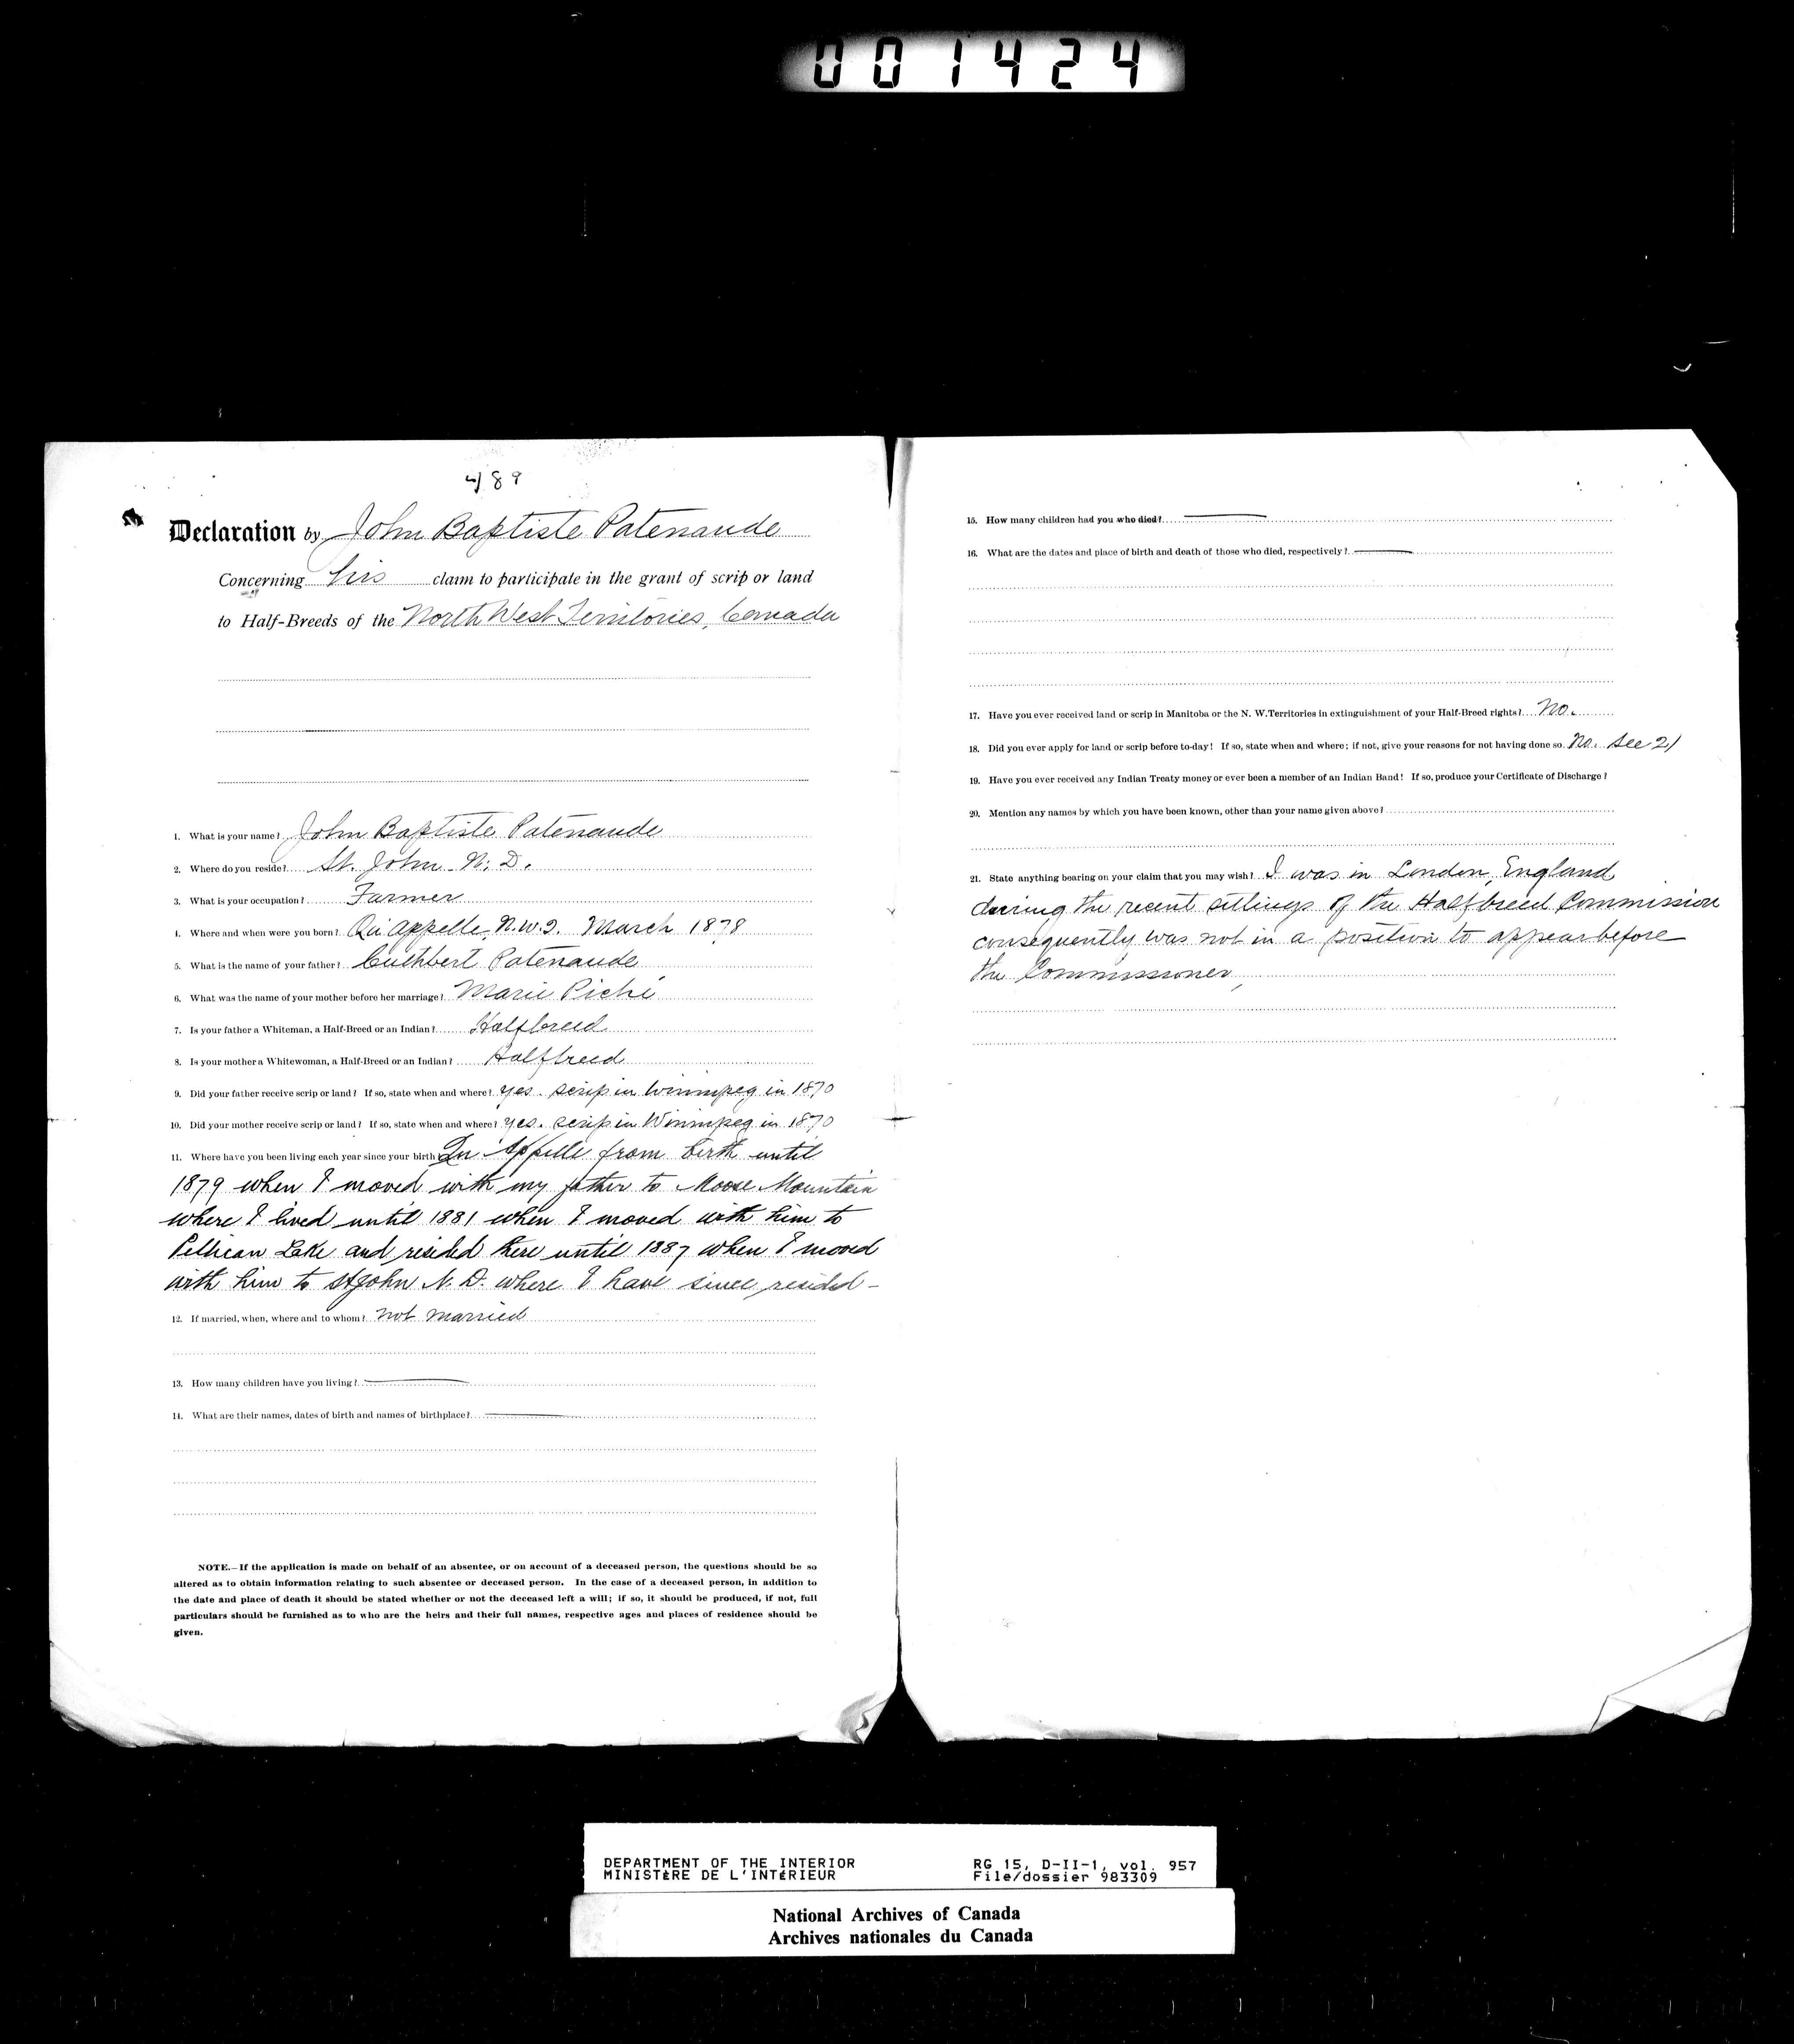 001424
489
Declaration by John Baptiste Patenaude
Concerning his claim to participate in the grant of scrip or land
to Half-Breeds of the North West Territories, Canada
1. What is your name? John Baptiste Patenaude
2. Where do you reside? St. John N. D.
3. What is your occupation? Farmer
4. Where and when were you born? Qu'appelle, N.W.T. March 1878
5. What is the name of your father? Cuthbert Patenaude
6. What was the name of your mother before her marriage? Marie Piché
7. Is your father a Whiteman, a Half-Breed or an Indian? Halfbreed
8. Is your mother a Whitewoman, a Half-Breed or an Indian? Halfbreed
9. Did your father receive scrip or land? If so, state when and where? yes. scrip in Winnipeg in 1870
10. Did your mother receive scrip or land? If so, state when and where? yes. scrip in Winnipeg in 1870
11. Where have you been living each year since your birth? Qu'Appelle from birth until
1879 when I moved with my father to Moose Mountain
where I lived until 1881 when I moved with him to
Pellican Lake and resided there until 1887 when I moved
with him to St John N. D. where I have since resided -
12. If married, when, where and to whom? not married
13. How many children have you living?
14. What are their names, dates of birth and names of birthplace?
NOTE.—If the application is made on behalf of an absentee, or on account of a deceased person, the questions should be so
altered as to obtain information relating to such absentee or deceased person. In the case of a deceased person, in addition to
the date and place of death it should be stated whether or not the deceased left a will; if so, it should be produced, if not, full
particulars should be furnished as to who are the heirs and their full names, respective ages and places of residence should be
given.
15. How many children had you who died?
16. What are the dates and place of birth and death of those who died, respectively?
17. Have you ever received land or scrip in Manitoba or the N. W. Territories in extinguishment of your Half-Breed rights? No.
18. Did you ever apply for land or scrip before to-day? If so, state when and where; if not, give your reasons for not having done so. No. See 21
19. Have you ever received any Indian Treaty money or ever been a member of an Indian Band? If so, produce your Certificate of Discharge?
20. Mention any names by which you have been known, other than your name given above?
21. State anything bearing on your claim that you may wish? I was in London, England
during the recent sittings of the Halfbreed Commission
consequently was not in a position to appear before
the Commissioner,
DEPARTMENT OF THE INTERIOR
MINISTÈRE DE L'INTÉRIEUR
RG 15, D-II-1, vol. 957
File/dossier 983309
National Archives of Canada
Archives nationales du Canada